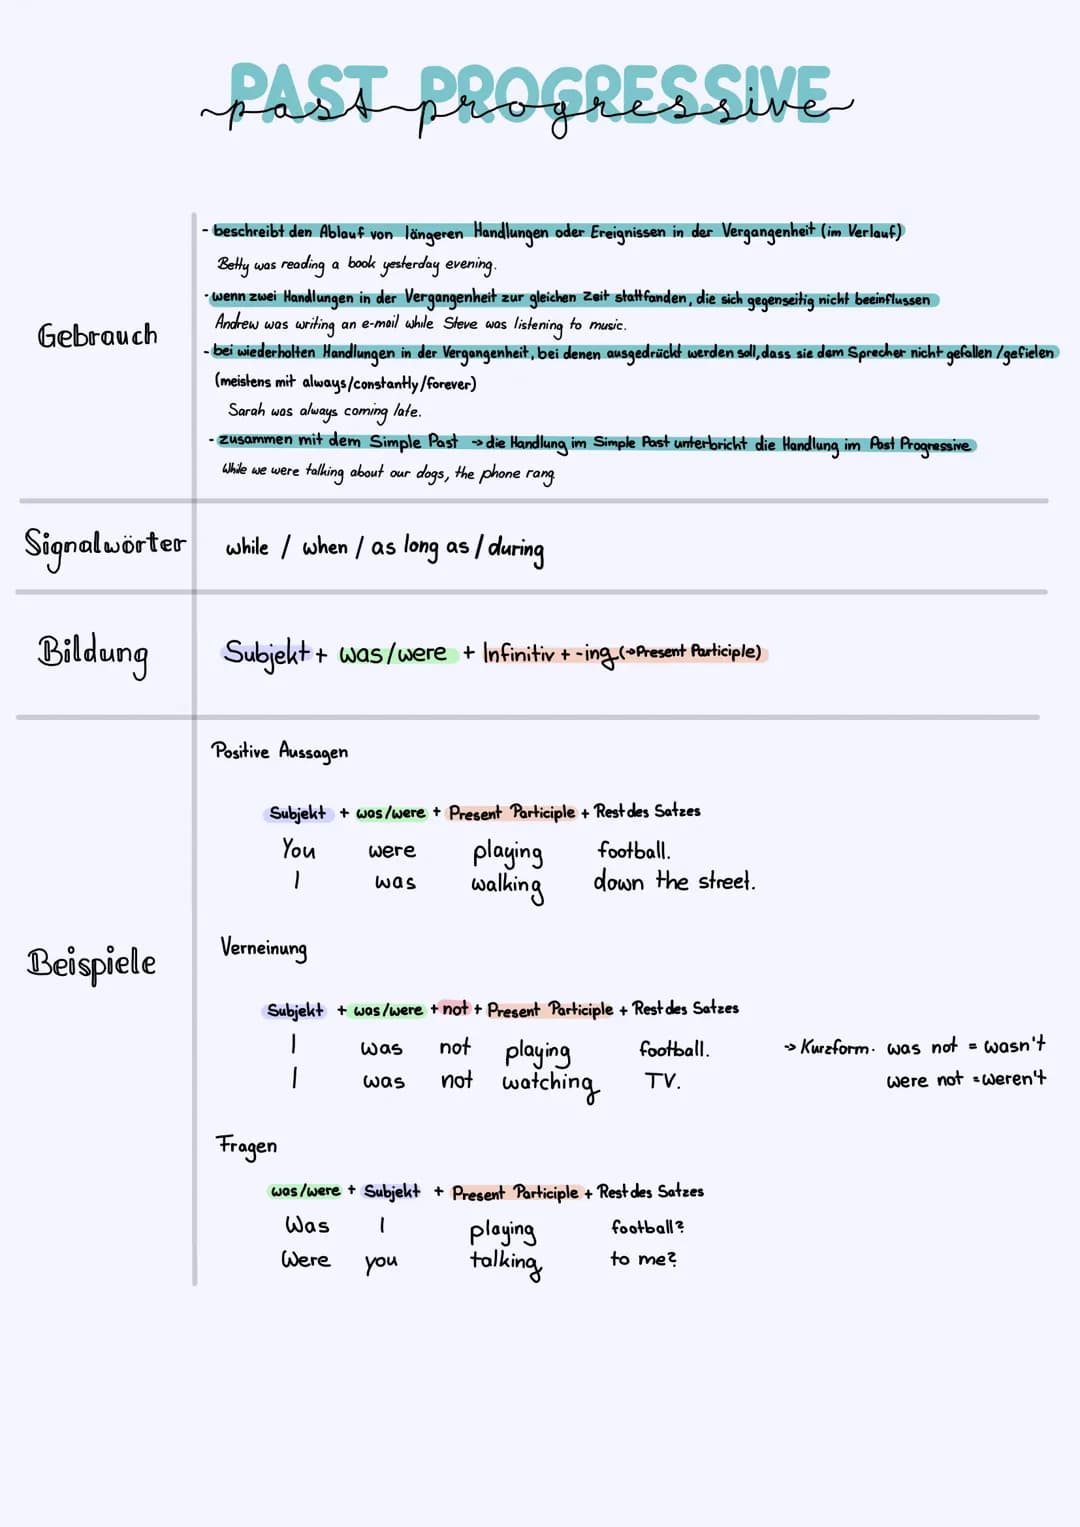 PAST PROGRESSIVE
past progressive
Gebrauch
- beschreibt den Ablauf von längeren Handlungen oder Ereignissen in der Vergangenheit (im Verlauf)
Betty was reading a book yesterday evening.
- wenn zwei Handlungen in der Vergangenheit zur gleichen Zeit stattfanden, die sich gegenseitig nicht beeinflussen
Andrew was writing an e-mail while Steve was listening to music.
- bei wiederholten Handlungen in der Vergangenheit, bei denen ausgedrückt werden soll, dass sie dem Sprecher nicht gefallen / gefielen
(meistens mit always/constantly/forever)
Sarah was always coming late.
- zusammen mit dem Simple Past → die Handlung im Simple Past unterbricht die Handlung im Past Progressive
While we were talking about our dogs, the phone rang
Signalwörter
while / when / as long as / during
Bildung
Subjekt + was/were + Infinitiv + -ing (→Present Participle)
Beispiele
Positive Aussagen
Subjekt + was/were + Present Participle + Rest des Satzes
You were playing football.
I was walking down the street.
Verneinung
Subjekt + was/were + not + Present Participle + Rest des Satzes
I was not playing football. → Kurzform. was not = wasn't
I was not watching TV. were not = weren't
Fragen
was/were + Subjekt + Present Participle + Rest des Satzes
Was I playing football?
Were you talking to me?